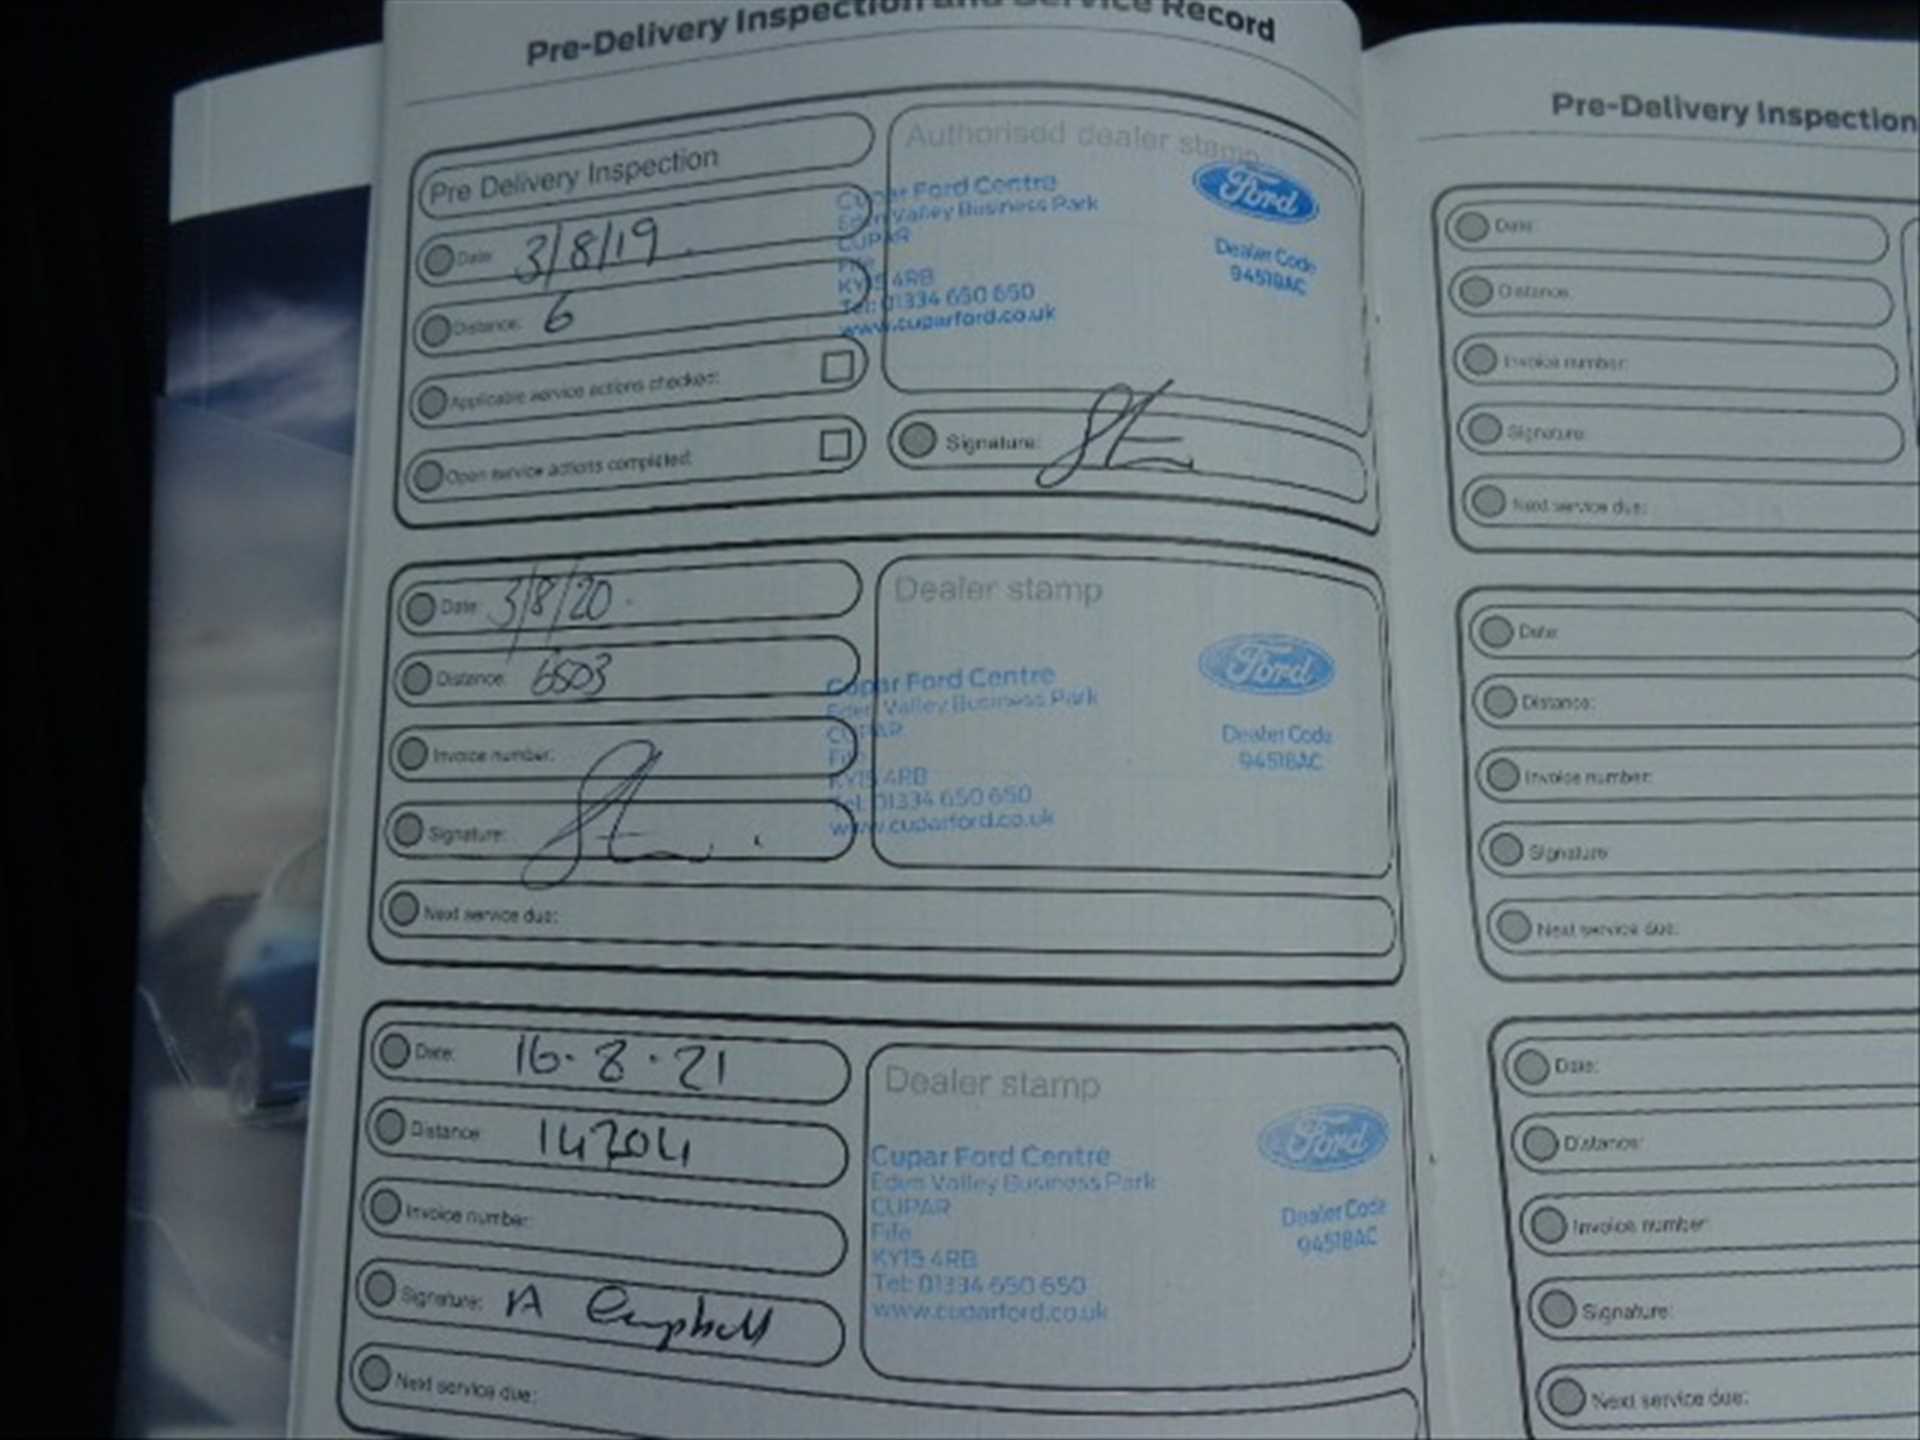 Pre-Delivery Inspection and Service Record
Pre Delivery Inspection
Date: 3/8/19
Distance: 6
Applicable service actions checked:
Open service actions completed:
Authorised dealer stamp
Cupar Ford Centre
Eden Valley Business Park
CUPAR
Fife
KY15 4RB
Tel: 01334 650 650
www.cuparford.co.uk
Ford
Dealer Code
94518AC
Signature:
Date: 3/8/20
Distance: 6503
Invoice number:
Signature:
Next service due:
Dealer stamp
Cupar Ford Centre
Eden Valley Business Park
CUPAR
Fife
KY15 4RB
Tel: 01334 650 650
www.cuparford.co.uk
Ford
Dealer Code
94518AC
Date: 16.8.21
Distance: 14204
Invoice number:
Signature: A Campbell
Next service due:
Dealer stamp
Cupar Ford Centre
Eden Valley Business Park
CUPAR
Fife
KY15 4RB
Tel: 01334 650 650
www.cuparford.co.uk
Ford
Dealer Code
94518AC
Pre-Delivery Inspection
Date:
Distance:
Invoice number:
Signature:
Next service due:
Date:
Distance:
Invoice number:
Signature:
Next service due:
Date:
Distance:
Invoice number:
Signature:
Next service due: